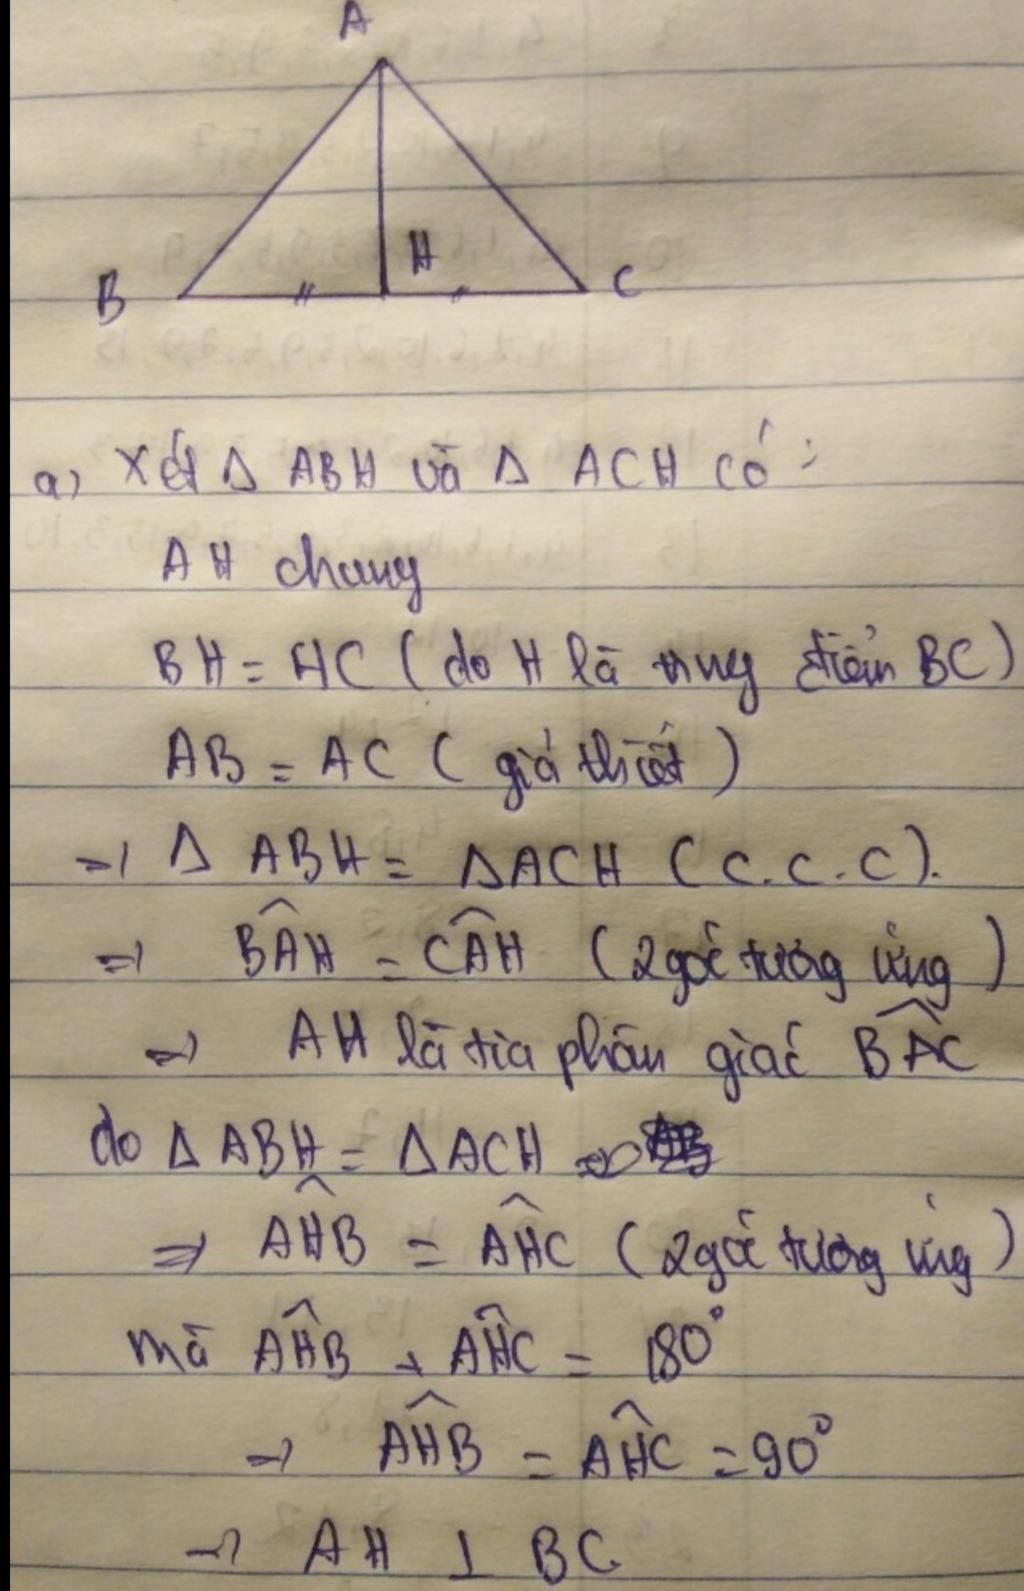 A
H
B
C
a) Xét Δ ABH và Δ ACH có :
AH chung
BH = HC ( do H là trung điểm BC )
AB = AC ( giả thiết )
=> Δ ABH = ΔACH ( C. C. C ).
=> BÂH = CÂH ( 2 góc tương ứng )
=> AH là tia phân giác BÂC
do Δ ABH = ΔACH
=> AĤB = AĤC ( 2 góc tương ứng )
mà AĤB + AĤC = 180°
=> AĤB = AĤC = 90°
=> AH ⊥ BC